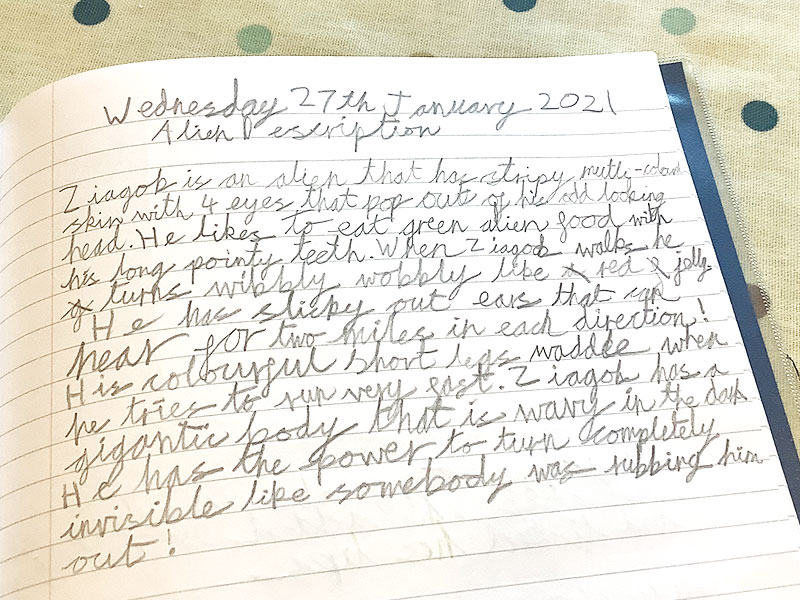 Wednesday 27th January 2021
Alien Description
Ziagob is an alien that has stripy mutli-colourd
skin with 4 eyes that pop out of his odd looking
head. He likes to eat green alien food with
his long pointy teeth. When Ziagob walks he
turns wibbly wobbly like red jelly.
He has sticky out ears that can
hear for two miles in each direction!
His colourful short legs waddle when
he tries to run very fast. Ziagob has a
gigantic body that is wavy in the dark
He has the power to turn completely
invisible like somebody was rubbing him
out!